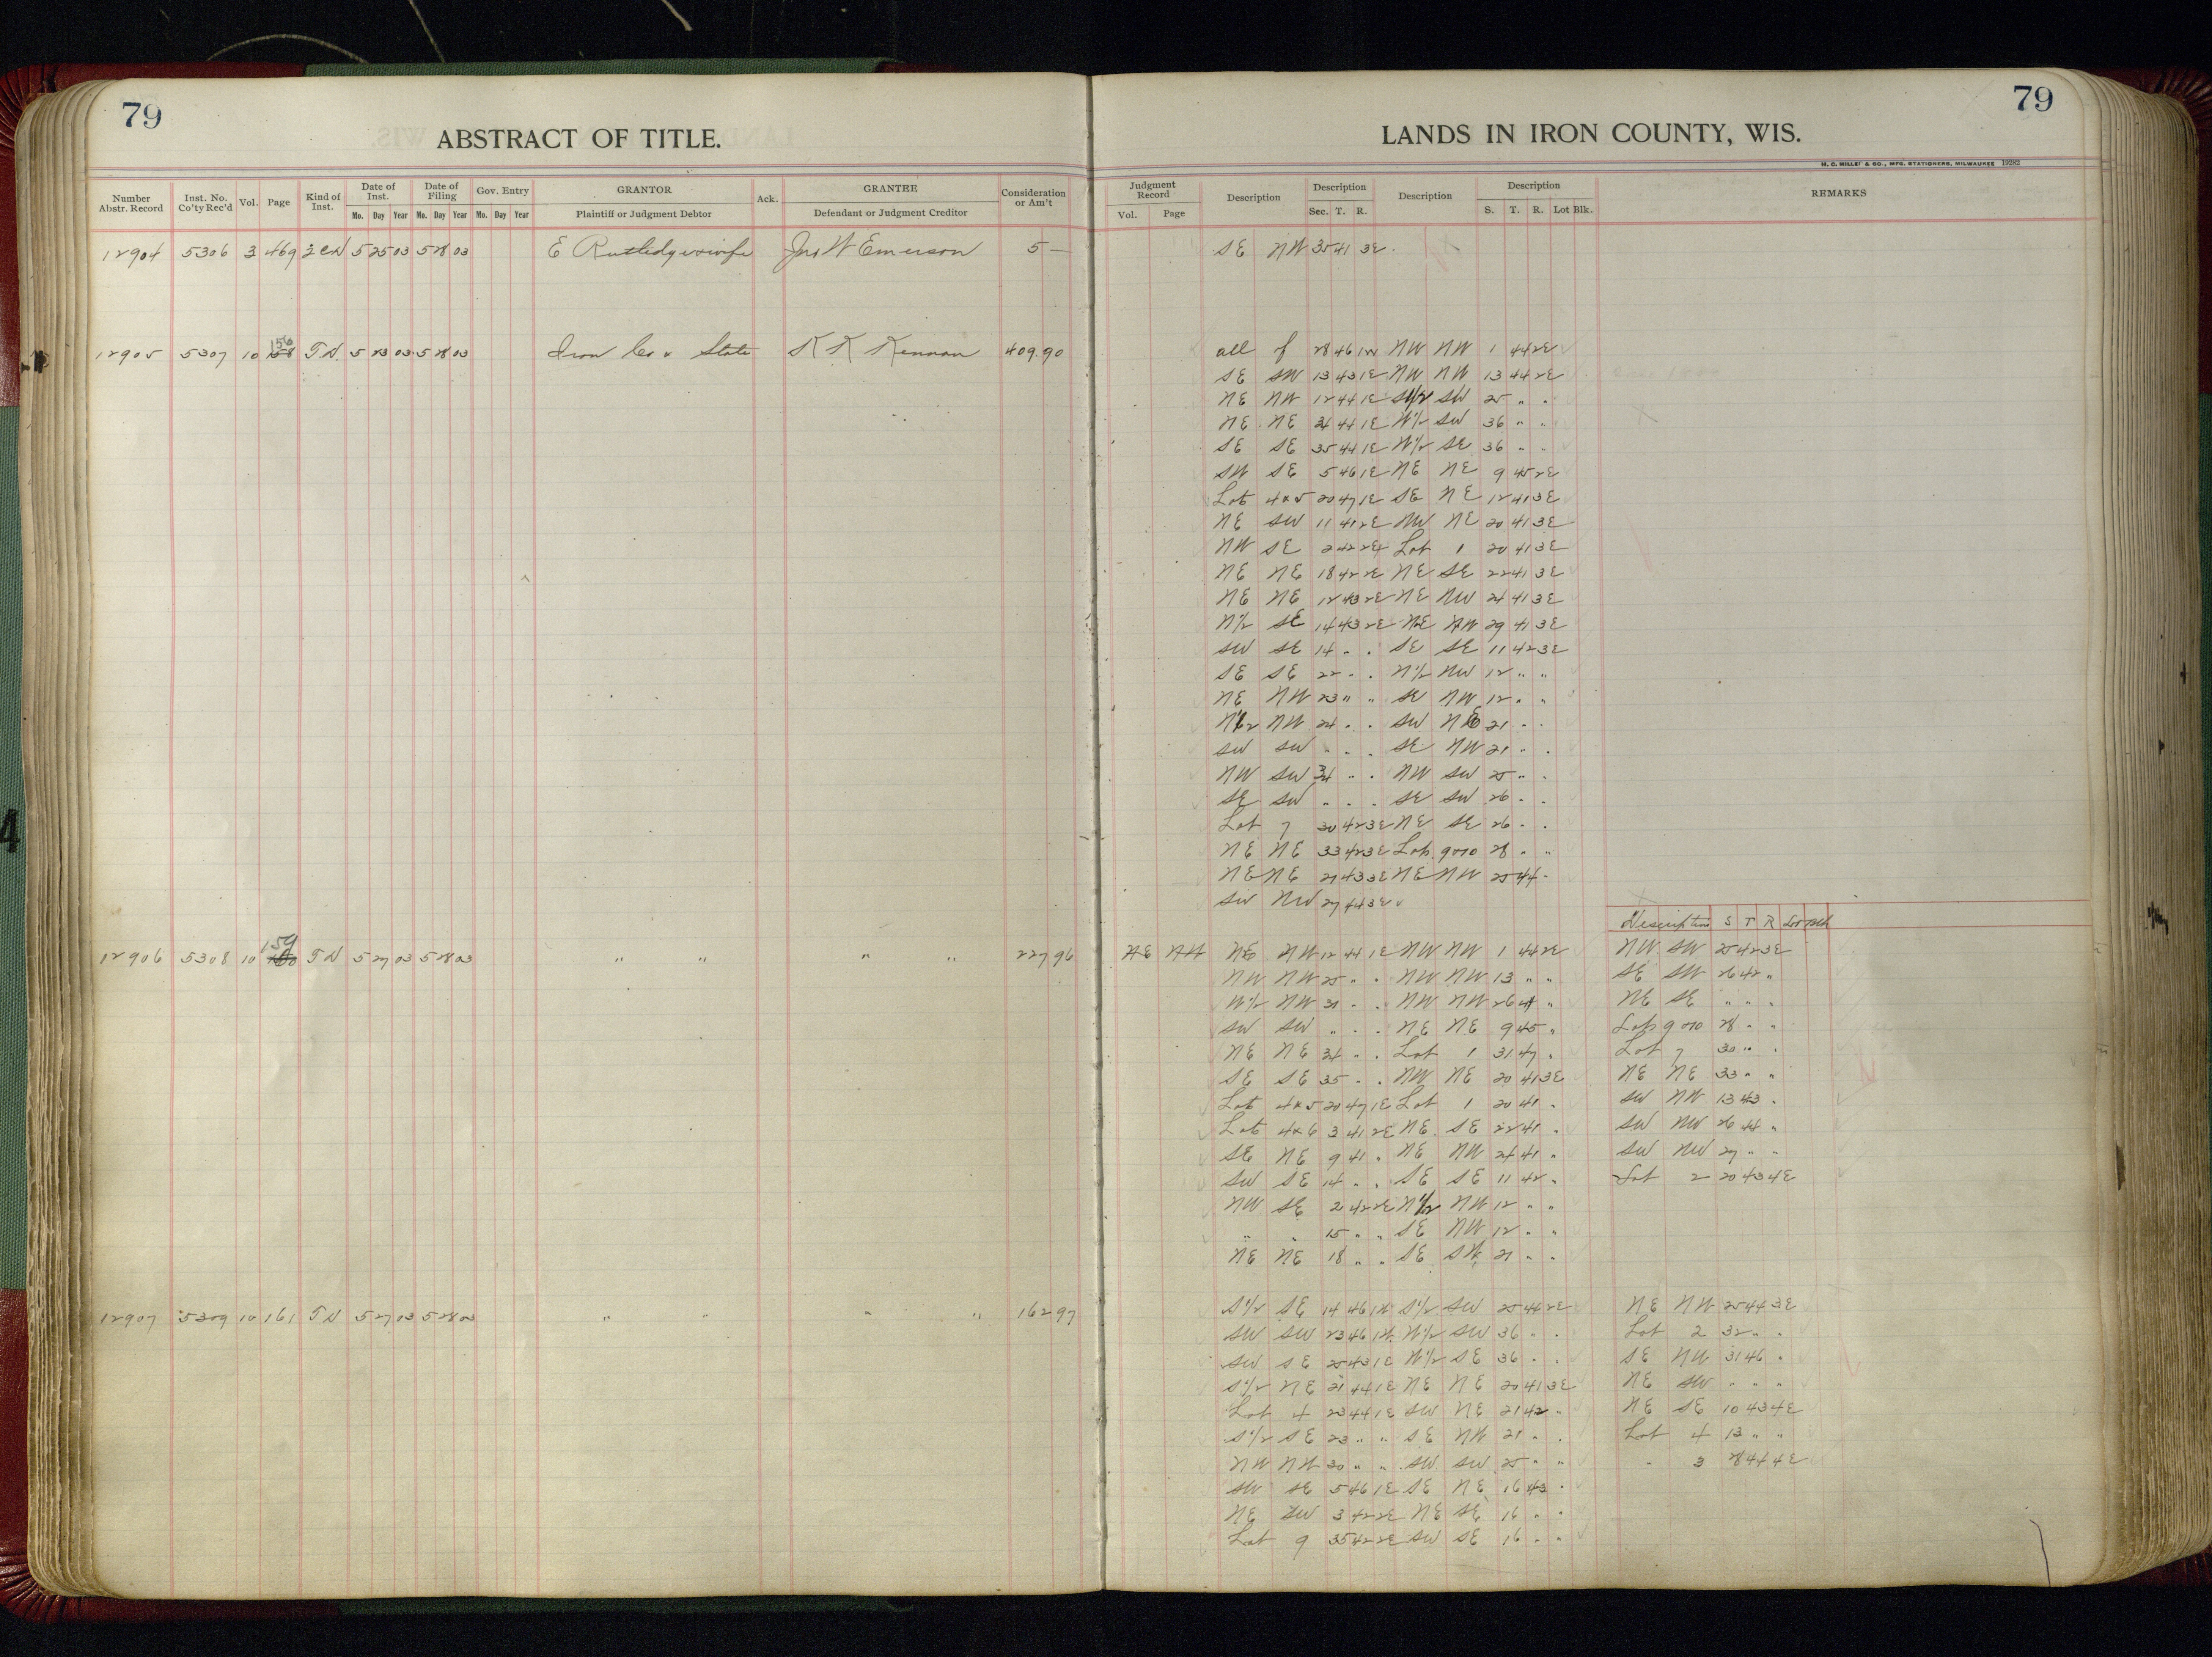 79
ABSTRACT OF TITLE.
Number Abstr. Record | Inst. No. Co'ty Rec'd | Vol. | Page | Kind of Inst. | Date of Inst. Mo. Day Year | Date of Filing Mo. Day Year | Gov. Entry Mo. Day Year | GRANTOR Plaintiff or Judgment Debtor | Ack. | GRANTEE Defendant or Judgment Creditor | Consideration or Am't
12904 5306 3 469 5 25 03 5 28 03 E Rutledge & wife Jno W Emerson 5 —
12905 5307 10 156 T D 5 23 03 5 28 03 Iron Co & State K K Kennan 409.90
12906 5308 10 159 T D 5 27 03 5 28 03 " " " " 227 96
12907 5309 10 161 T D 5 27 03 5 28 03 " " " " 162 97
79
LANDS IN IRON COUNTY, WIS.
M. C. MILLET & CO., MFG. STATIONERS, MILWAUKEE 19282
Judgment Record Vol. Page | Description | Description Sec. T. R. | Description | Description S. T. R. Lot Blk. | REMARKS
SE NW 35 41 3E
all of 28 46 1W NW NW 1 44 2E
SE SW 13 43 1E NW NW 13 44 2E
NE NW 12 44 1E SW 25 " "
NE NE 34 44 1E W1/2 SW 36 " "
SE SE 35 44 1E W1/2 SE 36 " "
SW SE 5 46 1E NE NE 9 45 2E
Lots 4 & 5 20 47 1E SE NE 12 41 3E
NE SW 11 41 2E NW NE 20 41 3E
NW SE 2 42 2E Lot 1 20 41 3E
NE NE 18 42 2E NE SE 22 41 3E
NE NE 12 43 2E NE NW 24 41 3E
N1/2 SE 14 43 2E NE NW 29 41 3E
SW SE 14 " " SE SE 11 42 3E
SE SE 22 " " N1/2 NW 12 " "
NE NW 23 " " SE NW 12 " "
N1/2 NW 24 " " SW NE 21 " "
SW SW " " " SE NW 21 " "
NW SW 34 " " NW SW 25 " "
SE SW " " " SE SW 26 " "
Lot 7 30 42 3E NE SE 26 " "
NE NE 33 42 3E Lots 9 & 10 28 " "
NE NE 21 43 3E NE NW 25 44 "
SW NW 27 44 3E
Description S T R Lot Blk
NE NW 12 44 1E NW NW 1 44 2E NW SW 25 42 3E
NW NW 25 " " NW NW 13 " " SE SW 26 42 "
W1/2 NW 31 " " NW NW 26 44 " NE SE " " "
SW SW " " " NE NE 9 45 " Lots 9 & 10 28 " "
NE NE 34 " " Lot 1 31 47 " Lot 7 30 " "
SE SE 35 " " NW NE 20 41 3E NE NE 33 " "
Lots 4 & 5 20 47 1E Lot 1 20 41 " SW NW 13 43 "
Lots 4 & 6 3 41 2E NE SE 22 41 " SW NW 26 44 "
SE NE 9 41 " NE NW 24 41 " SW NW 27 " "
SW SE 14 " " SE SE 11 42 " Lot 2 20 43 4E
NW SE 2 42 2E N1/2 NW 12 " "
" " 15 " " SE NW 12 " "
NE NE 18 " " SE 21 " "
S1/2 SE 14 46 1W S1/2 SW 25 44 2E NE NW 25 44 3E
SW SW 23 46 1W W1/2 SW 36 " " Lot 2 32 " "
SW SE 25 43 1E W1/2 SE 36 " " SE NW 31 46 "
S1/2 NE 21 44 1E NE NE 20 41 3E NE SW " " "
Lot 4 23 44 1E SW NE 21 42 " NE SE 10 43 4E
S1/2 SE 23 " " SE NW 21 " " Lot 4 13 " "
NW NW 30 " " SW SW 25 " " " 3 28 44 4E
SW SE 5 46 1E SE NE 16 43 "
NE SW 3 42 2E NE SE 16 " "
Lot 9 35 42 2E SW SE 16 " "